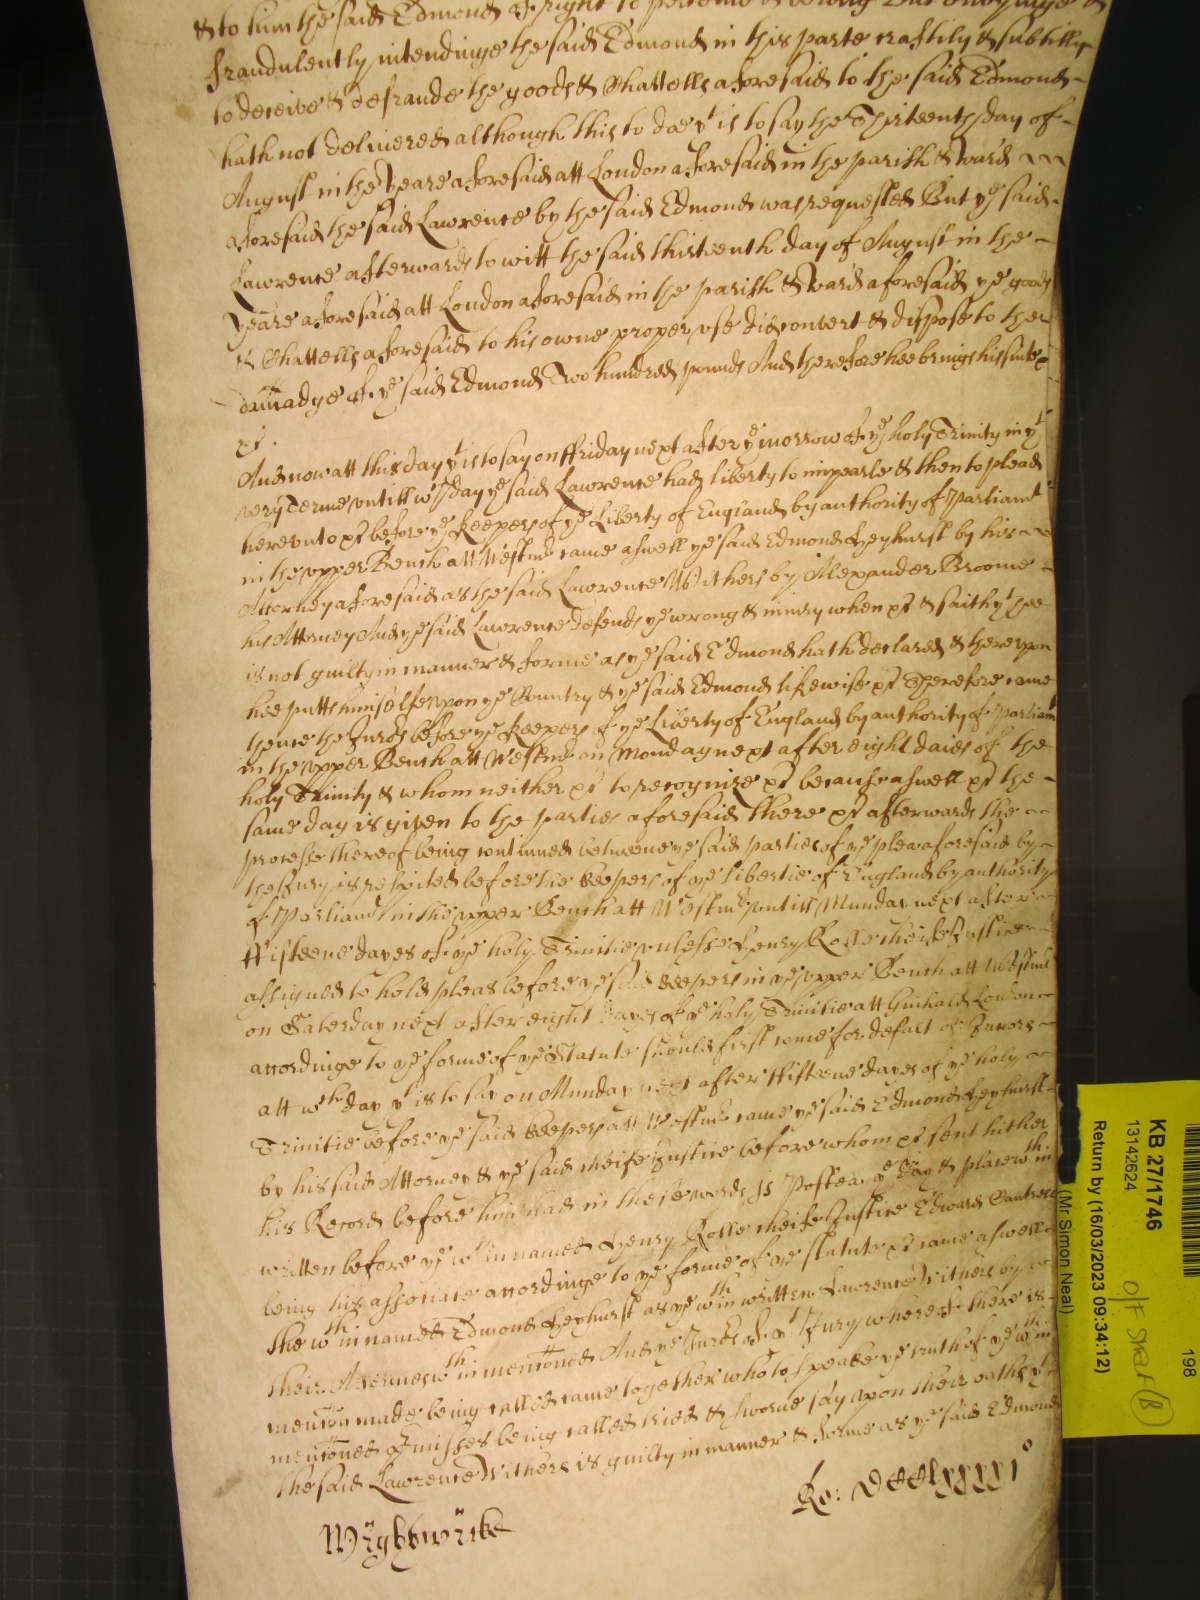 & to him the said Edmond of right to perteine & belong But envyinge &
fraudulently intendinge the said Edmond in this parte craftily & subtilly
to deceive & defraude the goods & Chattells aforesaid to the said Edmond
hath not delivered although this to doe yt is to say the Thirteenth day of
August in the yeare aforesaid att London aforesaid in the parish & Ward
aforesaid the said Lawrence by the said Edmond was requested But ye said
Lawrence afterwards to witt the said thirteenth day of August in the
yeare aforesaid att London aforesaid in the parish & Ward aforesaid ye goods
& Chattells aforesaid to his owne proper use did convert & dispose to the
damadge of ye said Edmond Two hundred pounds And therefore hee brings his suite
&c.
And now att this day yt is to say on ffriday next after ye morrow of ye holy Trinity in yt
very Terme untill wch day ye said Lawrence had liberty to imparle & then to plead
hereunto &c before ye Keepers of ye Liberty of England by authority of Parliamt
in the upper Bench att Westmr came aswell ye said Edmond Heyhurst by his
Attorney aforesaid as the said Lawrence Withers by Alexander Broome
his Attorney And ye said Lawrence defends ye wrong & iniury when &c & saith yt hee
is not guilty in manner & forme as ye said Edmond hath declared & thereupon
hee putts himselfe upon ye Country & ye said Edmond likewise &c Therefore came
thence the Jurds before ye Keepers of ye Liberty of England by authority of Parliam
in the upper Bench att Westmr on Monday next after eight daies of the
holy Trinity & whom neither &c to recognize &c because aswell &c the
same day is given to the parties aforesaid there &c afterwards the
processe thereof being continued betweene ye said parties of ye plea aforesaid by
the Jury is respited before the Keepers of ye libertie of England by authority
of Parliamt in the upper Bench att Westmr untill Munday next after
ffifteene dayes of ye holy Trinitie unlesse Henry Rolle cheife Justice
assigned to hold pleas before ye said Keepers in ye upper Bench att Westmr
on Saterday next after eight dayes of ye holy Trinitie att Guihald London
accordinge to ye forme of ye Statute should first come for defalt of Jurors
att wch day yt is to say on Munday next after ffifteene dayes of ye holy
Trinitie before ye said Keepers att Westmr came ye said Edmond Heyhurst
by his said Attorney & ye said cheife Justice before whom &c sent hither
his Record before him had in these words ss Postea ye day & place wthin
written before ye wthin named Henry Rolle cheife Justice Edward Coutrese
being his associate accordinge to ye forme of ye statute &c came aswell
the wthin named Edmond Heyhurst as ye wthin written Lawrence Withers by
their Attorneies wthin mencõned And ye Jurds of yt Jury whereof there is
mencõn made being called came together who to speake ye truth of ye wthin
mencõned premisses being called tried & sworne say upon their oathes yt
the said Lawrence Withers is guilty in manner & forme as ye said Edmond
Wightwicke
Ro: DCCClxxxxj°
KB 27/1746
13142624
Return by (16/03/2023 09:34:12)
(Mr Simon Neal)
198